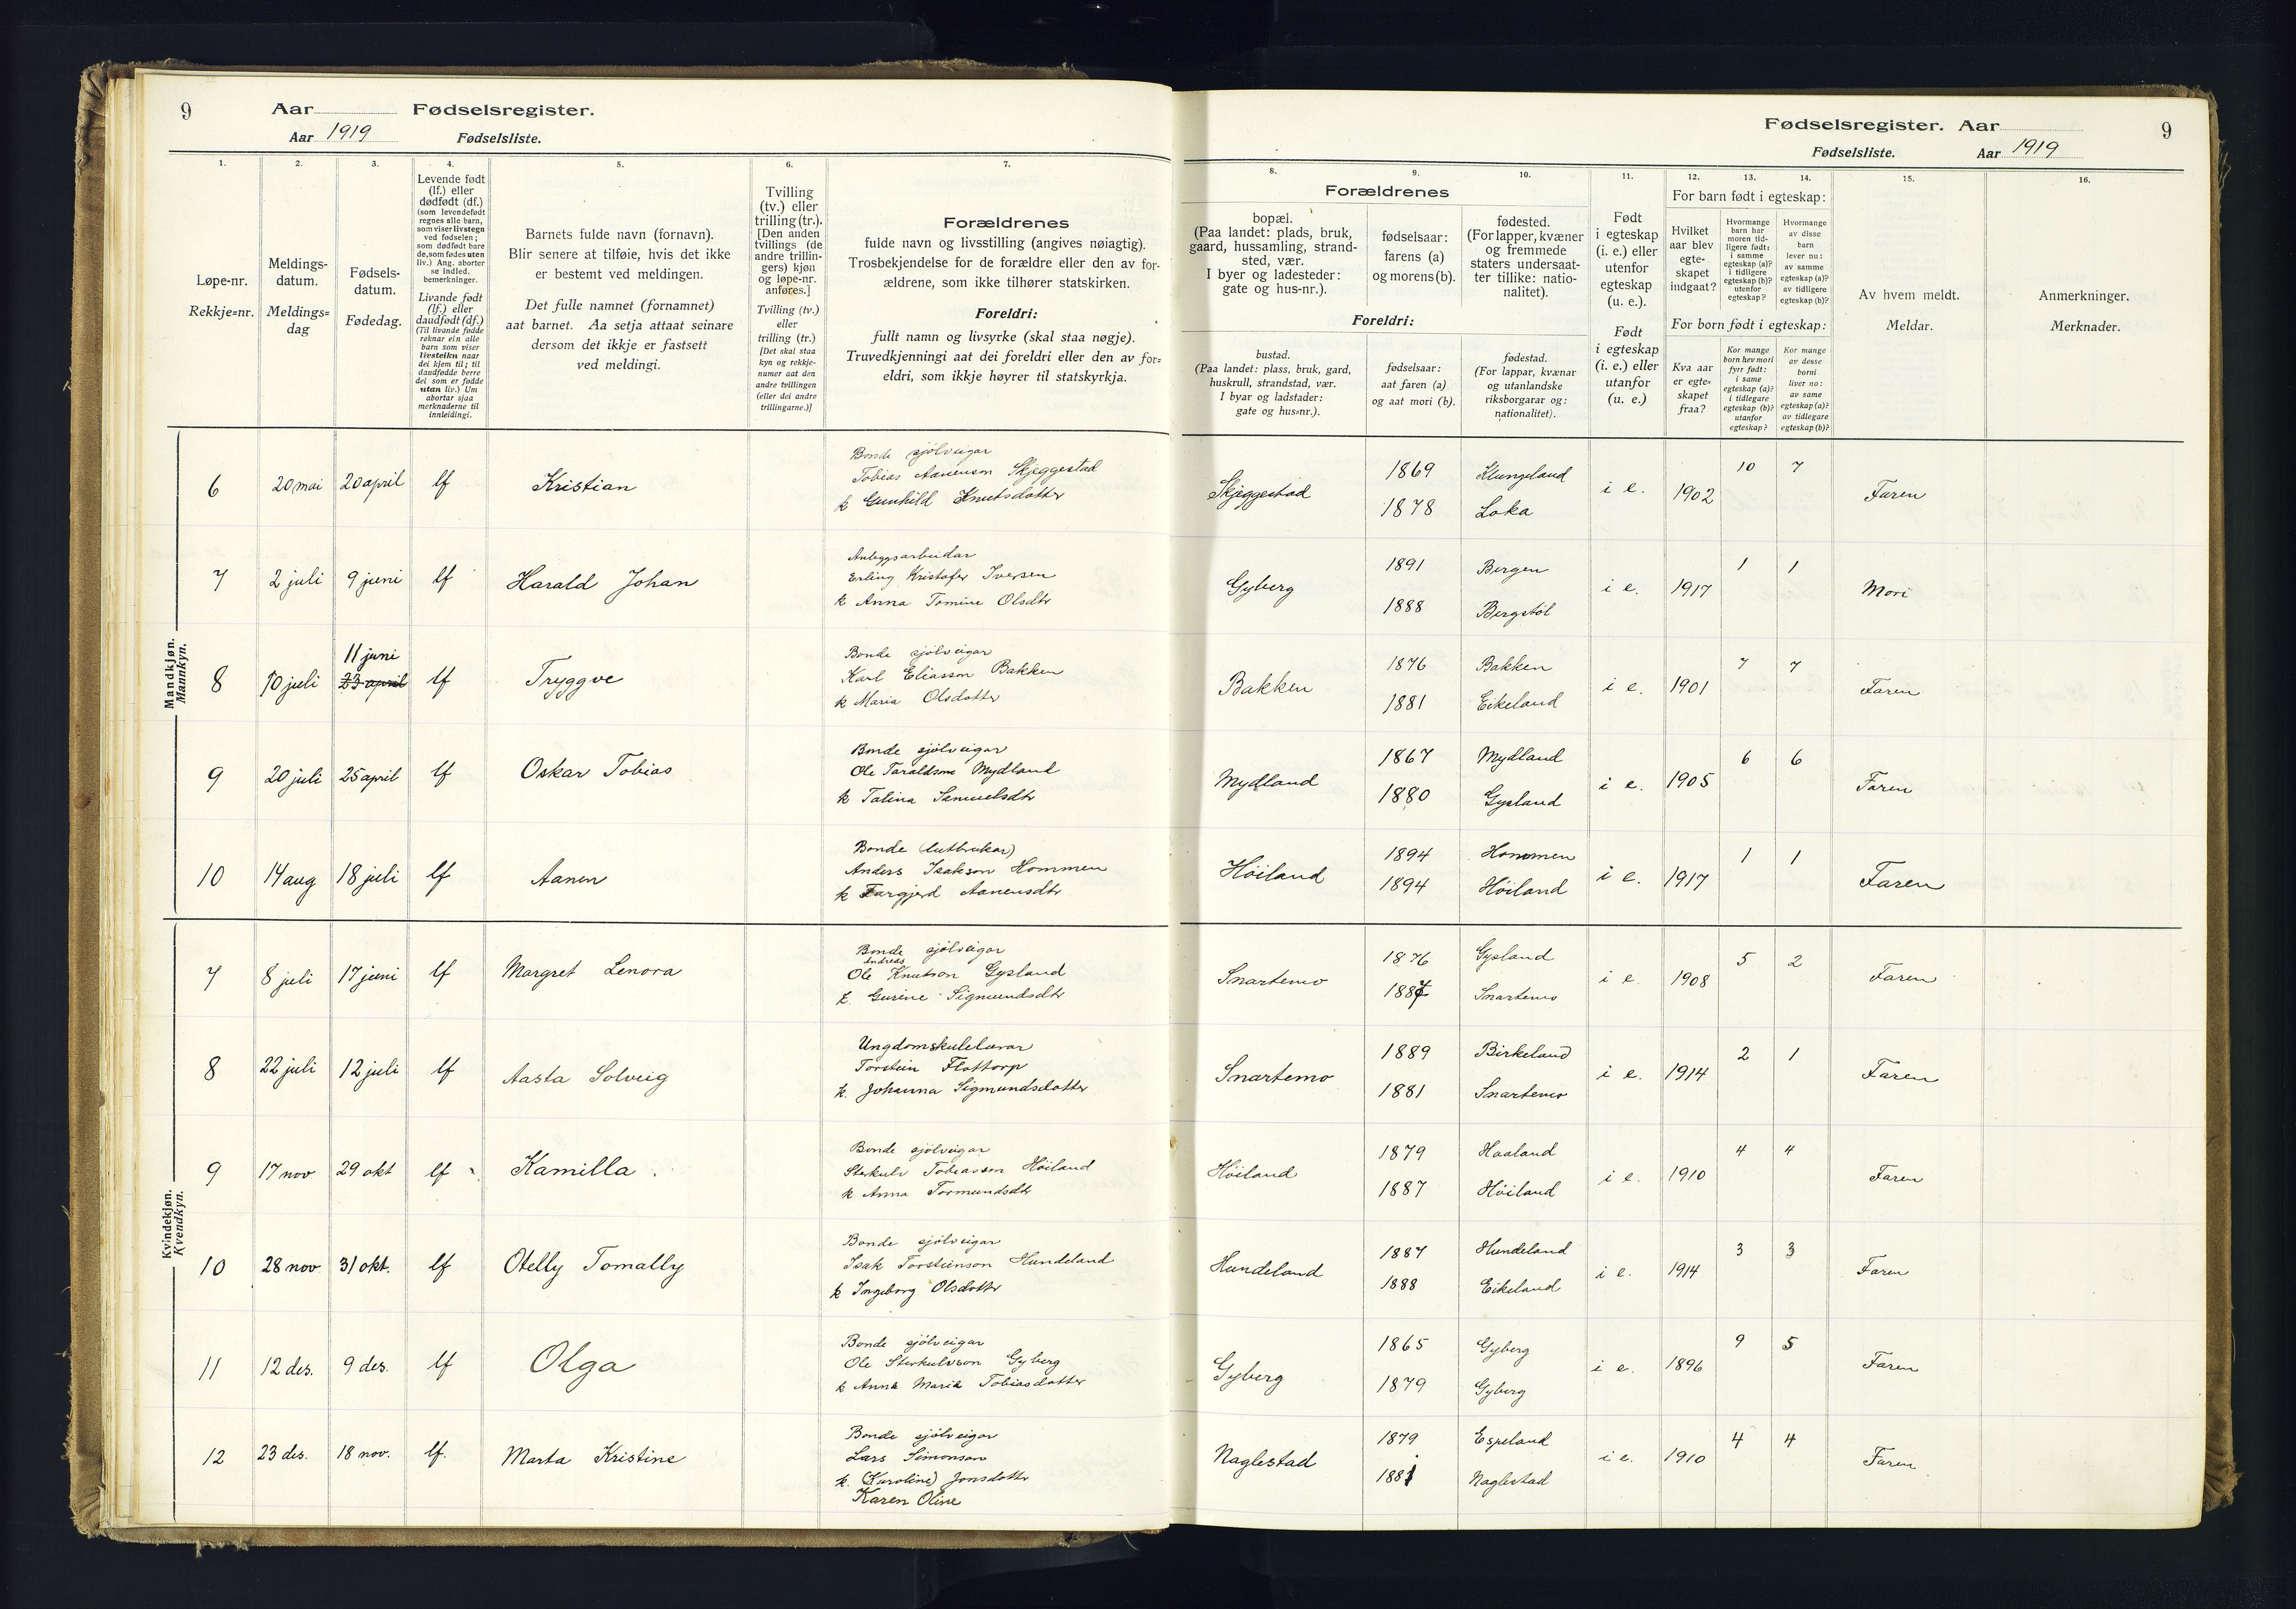 9
Aar
Fødselsregister.
Aar 1919
Fødselsliste.
1.
Løpe-nr.
Rekkje=nr.
2.
Meldings-
datum.
Meldings=
dag
3.
Fødsels-
datum.
Fødedag.
4.
Levende født
(lf.) eller
dødfødt (df.)
(som levendefødt
regnes alle barn,
som viser livstegn
ved fødselen;
som dødfødt bare
de, som fødes uten
liv.) Ang. aborter
se indled.
bemerkninger.
Livande født
(lf.) eller
daudfødt (df.)
(Til livande fødde
reknar ein alle
barn som viser
livsteikn naar
dei kjem til; til
daudfødde berre
dei som er fødde
utan liv.) Um
abortar sjaa
merknaderne til
innleidingi.
5.
Barnets fulde navn (fornavn).
Blir senere at tilføie, hvis det ikke
er bestemt ved meldingen.
Det fulle namnet (fornamnet)
aat barnet. Aa setja attaat seinare
dersom det ikkje er fastsett
ved meldingi.
6.
Tvilling
(tv.) eller
trilling (tr.).
[Den anden
tvillings (de
andre trillin-
gers) kjøn
og løpe-nr.
anføres.]
Tvilling (tv.)
eller
trilling (tr.)
[Det skal staa
kyn og rekkje-
numer aat den
andre tvillingen
(eller dei andre
trillingarne.)]
7.
Forældrenes
fulde navn og livsstilling (angives nøiagtig).
Trosbekjendelse for de forældre eller den av for-
ældrene, som ikke tilhører statskirken.
Foreldri:
fullt namn og livsyrke (skal staa nøgje).
Truvedkjenningi aat dei foreldri eller den av for=
eldri, som ikkje høyrer til statskyrkja.
Fødselsregister. Aar
9
Fødselsliste.
Aar 1919
8.
9.
10.
Forældrenes
bopæl.
(Paa landet: plads, bruk,
gaard, hussamling, strand-
sted, vær.
I byer og ladesteder:
gate og hus-nr.).
fødselsaar:
farens (a)
og morens (b).
fødested.
(For lapper, kvæner
og fremmede
staters undersaat-
ter tillike: natio-
nalitet).
Foreldri:
bustad.
(Paa landet: plass, bruk, gard,
huskrull, strandstad, vær.
I byar og ladstader:
gate og hus=nr.).
fødselsaar:
aat faren (a)
og aat mori (b).
fødestad.
(For lappar, kvænar
og utanlandske
riksborgarar og:
nationalitet).
11.
Født
i egteskap
(i. e.) eller
utenfor
egteskap
(u. e.).
Født
i egteskap
(i. e.) eller
utanfor
(u. e.)
12.
13.
14.
For barn født i egteskap:
Hvilket
aar blev
egte-
skapet
indgaat?
Hvormange
barn har
moren tid-
ligere født:
i samme
egteskap (a)?
i tidligere
egteskap (b)?
utenfor
egteskap?
Hvormange
av disse
barn
lever nu:
av samme
egteskap (a)?
av tidligere
egteskap (b)?
For born født i egteskap:
Kva aar
er egte=
skapet
fraa?
Kor mange
born hev mori
fyrr født:
i same
egteskap (a)?
i tidlegare
egteskap (b)?
utanfor
egteskap?
Kor mange
av desse
borni
liver no:
av same
egteskap (a)?
av tidlegare
egteskap (b)?
15.
Av hvem meldt.
Meldar.
16.
Anmerkninger.
Merknader.
Mandkjøn.
Mannkyn.
6 20 mai 20 april lf Kristian
Bonde sjölveigar
Tobias Aanenson Skjeggestad
k Gunhild Knutsdotter
Skjeggestad 1869 Klungeland i e. 1902 10 7 Faren
1878 Loka
7 2 juli 9 juni lf Harald Johan
Anleggsarbeidar
Erling Kristofer Iversen
k Anna Tomine Olsdtr
Gyberg 1891 Bergen i e. 1917 1 1 Mori
1888 Bergstöl
11 juni
8 10 juli 23 april lf Tryggve
Bonde sjölveigar
Karl Eliasson Bakken
k Maria Olsdotter
Bakken 1876 Bakken i e. 1901 7 7 Faren
1881 Eikeland
9 20 juli 25 april lf Oskar Tobias
Bonde sjölveigar
Ole Taraldson Mydland
k Talina Samuelsdtr
Mydland 1867 Mydland i e. 1905 6 6 Faren
1880 Gysland
10 14 aug 18 juli lf Aanen
Bonde (lutbrukar)
Anders Isakson Hommen
k Targjerd Aanensdtr
Høiland 1894 Hommen i e. 1917 1 1 Faren
1894 Høiland
Kvindekjøn.
Kvendkyn.
7 8 juli 17 juni lf Margret Lenora
Bonde sjölveigar
Andreas
Ole Knutson Gysland
k. Gurine Sigmundsdtr
Snartemo 1876 Gysland i e. 1908 5 2 Faren
1887 Snartemo
8 22 juli 12 juli lf Aasta Solveig
Ungdomskulelærar
Torstein Flottorp
k. Johanna Sigmundsdotter
Snartemo 1889 Birkeland i e. 1914 2 1 Faren
1881 Snartemo
9 17 nov 29 okt lf Kamilla.
Bonde sjölveigar
Sterkulv Tobiasson Höiland
k Anna Tormundsdtr
Höiland 1879 Haaland i e. 1910 4 4 Faren
1887 Höiland
10 28 nov 31 okt. lf Otelly Tomally
Bonde sjölveigar
Isak Torsteinson Hundeland
k Ingeborg Olsdottr
Hundeland 1887 Hundeland i e. 1914 3 3 Faren
1888 Eikeland
11 12 des. 9 des. lf Olga
Bonde sjölveigar
Ole Sterkulvson Gyberg
k Anna Maria Tobiasdotter
Gyberg 1865 Gyberg i e. 1896 9 5 Faren
1879 Gyberg
12 23 des. 18 nov. lf. Marta Kristine
Bonde sjölveigar
Lars Simonson
k. (Karoline) Jonsdottr
Karen Oline
Naglestad 1879 Espeland i e. 1910 4 4 Faren
1881 Naglestad